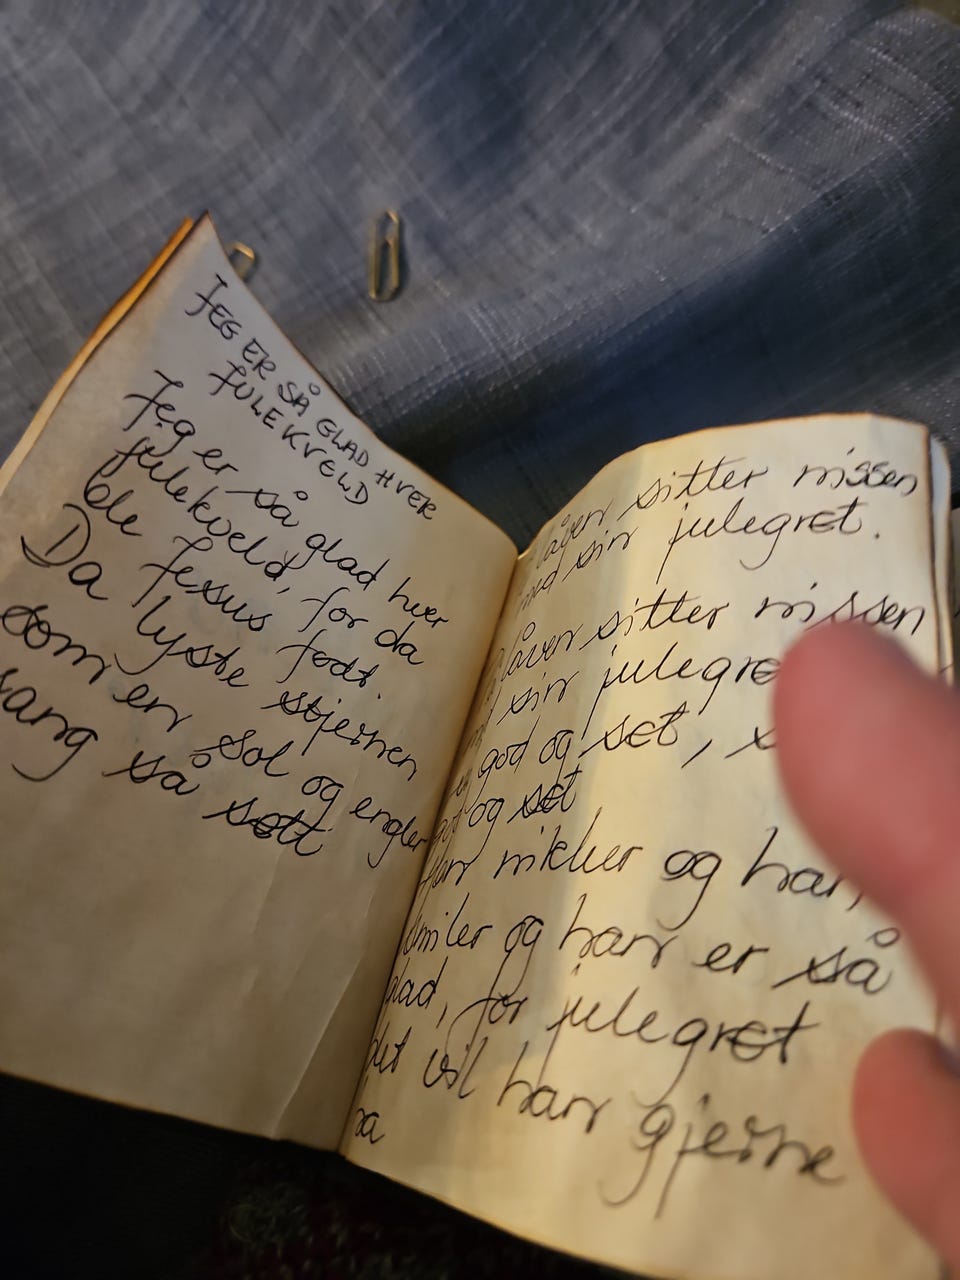 JEG ER SÅ GLAD HVER
JULEKVELD
Jeg er så glad hver
julekveld, for da
ble Jesus født.
Da lyste stjernen
som en sol og engler
sang så søtt
låven sitter nissen
med sin julegrøt.
låven sitter nissen
sin julegrø
god og søt,
god og søt
Han nikker og han
smiler og han er så
glad, for julegrøt
det vil han gjerne
ha